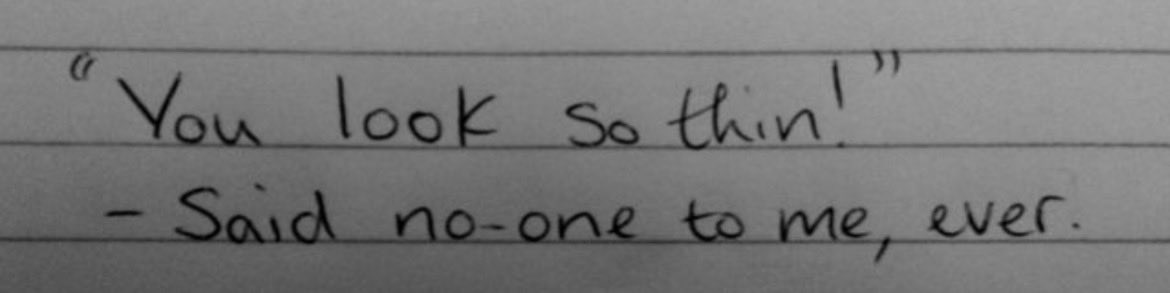 “You look so thin!”
- Said no-one to me, ever.